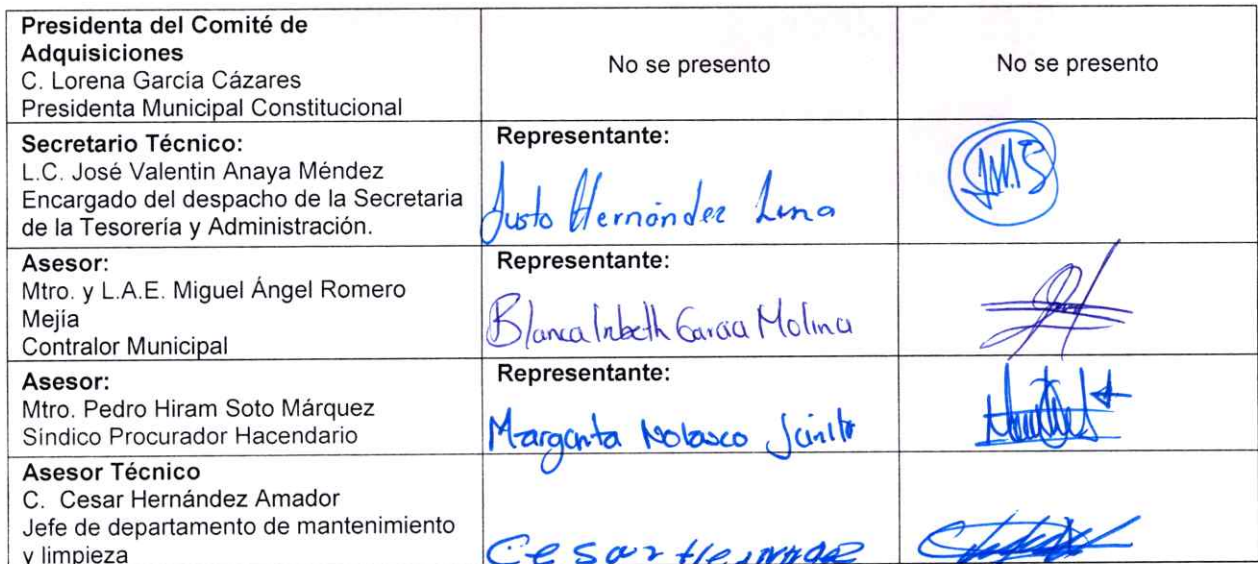 Presidenta del Comité de
Adquisiciones
C. Lorena García Cázares
Presidenta Municipal Constitucional
No se presento
No se presento
Secretario Técnico:
L.C. José Valentin Anaya Méndez
Encargado del despacho de la Secretaria
de la Tesorería y Administración.
Representante:
Justo Hernández Luna
Asesor:
Mtro. y L.A.E. Miguel Ángel Romero
Mejía
Contralor Municipal
Representante:
Blanca García Molina
Asesor:
Mtro. Pedro Hiram Soto Márquez
Síndico Procurador Hacendario
Representante:
Margarita Nolasco
Asesor Técnico
C. Cesar Hernández Amador
Jefe de departamento de mantenimiento
y limpieza
Cesar